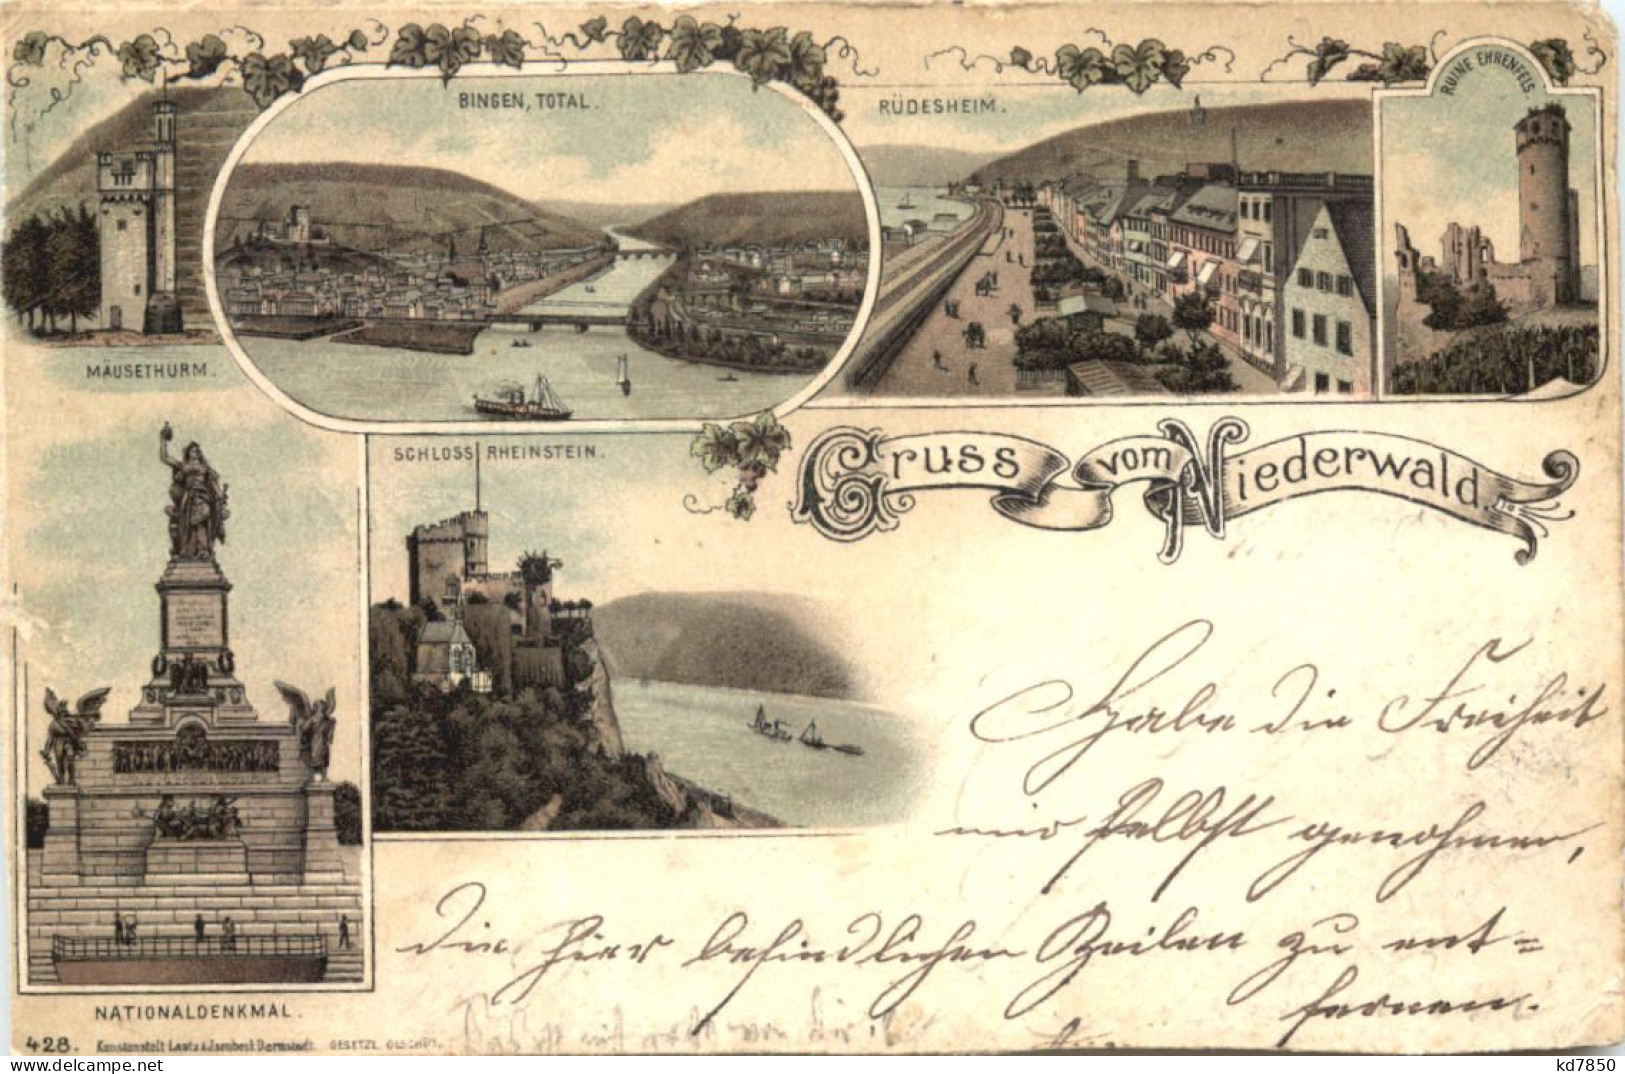 BINGEN, TOTAL.
RÜDESHEIM.
RUINE EHRENFELS
MÄUSETHURM.
SCHLOSS RHEINSTEIN.
Gruss vom Niederwald.
Habe die Freiheit
mir selbst genohmen,
die hier befindlichen Zeilen zu ent=
fernen.
NATIONALDENKMAL.
428. Kunstanstalt Lautz & Isenbeck Darmstadt. GESETZL. GESCHÜT.
kd7850